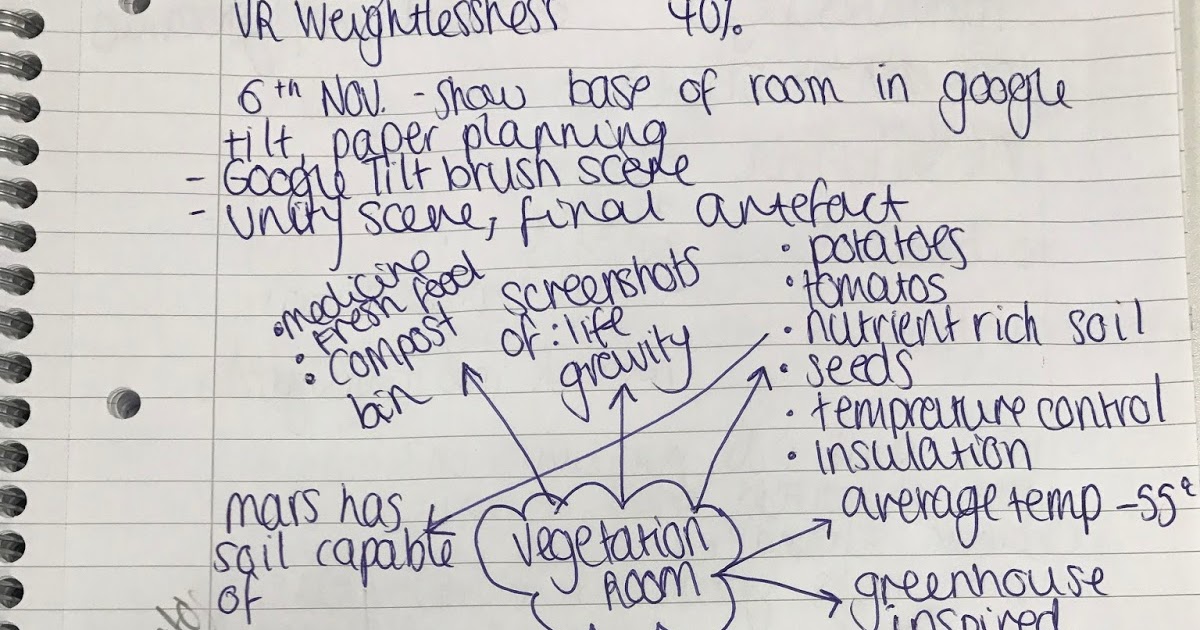 VR Weightlessness 40%
6th NOV. - show base of room in google
tilt, paper planning
- Google Tilt brush scene
- unity scene, final artefact
• medicine
• Fresh food
• compost
bin
screenshots
of : life
gravity
• potatoes
• tomatos
• nutrient rich soil
• seeds
• temprature control
• insulation
mars has
soil capable
of
vegetation
ROOM
average temp -55°
greenhouse
inspired